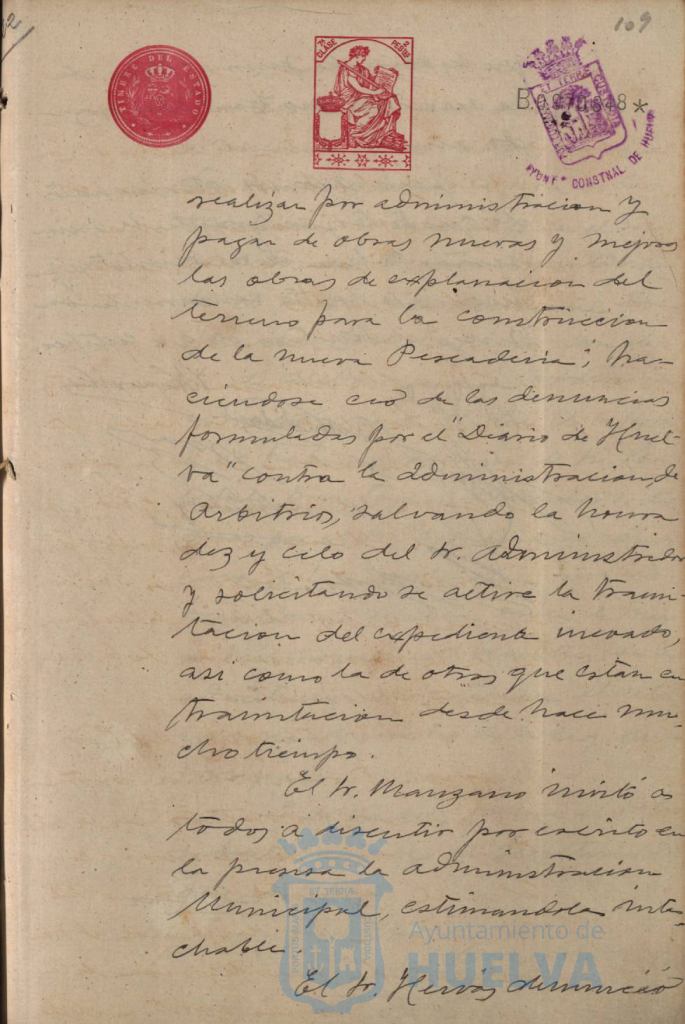 109
TIMBRE DEL ESTADO
7ª CLASE
2 PESETAS
B.0.970.848 *
AYUNTº CONSTNAL DE HUELVA
realizar por administracion y
pagar de obras nuevas y mejoras
las obras de explanacion del
terreno para la construccion
de la nueva Pescaderia; ha-
ciendose eco de las denuncias
formuladas por el "Diario de Huel-
va" contra la administracion de
Arbitrios, salvando la honra
dez y celo del Sr. Administrador
y solicitando se active la trami-
tacion del expediente incoado,
asi como la de otros que estan en
tramitacion desde hace mu-
cho tiempo.
El Sr. Manzano invitó a
todos a discutir por escrito en
la prensa la administracion
Municipal, estimandola inta-
chable.
El Sr. Hervás denunció
Ayuntamiento de
HUELVA